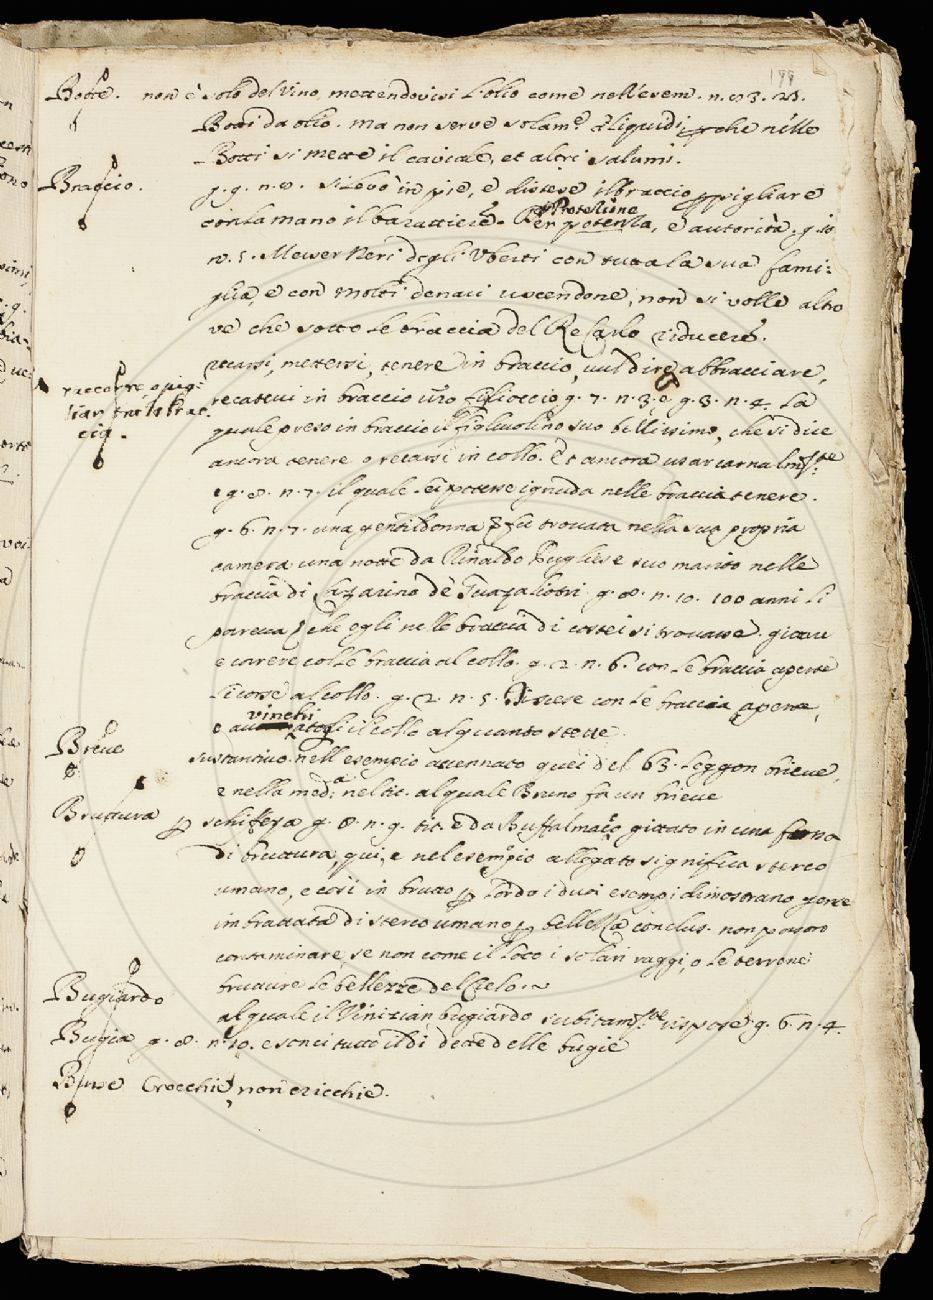 199
Botte. non è solo del Vino, mettendovisi l'olio come nell'esem. n. 93. 21.
Botti da olio. ma non serve solam.e a liquidi, che nelle
Botti si mette il caviale, et altri salumi.
Braccio. g. 9. n. 8. si levò in piè, e distese il braccio p pigliare
con la mano il barattiere. Protezione
Per potenza, e autorità. g. 10
n. 5. Messer Neri degli Uberti con tutta la sua fami:
glia, e con molti denari uscendone, non si volle altro
ve che sotto le braccia del Re Carlo riducere.
recarsi, mettersi, tenere in braccio, vuol dire abbracciare,
raccorre, o pig:
liar fra le brac
cia.
recatevi in braccio vro figlioccio g. 7. n. 3, e g. 3. n. 4. la
quale preso in braccio il figliuolino suo bellissimo, che si dice
ancora tenere o recarsi in collo. Et ancora usar carnalm.te
g. 8. n. 7. il quale potesse ignuda nelle braccia tenere.
g. 6. n. 7. una gentildonna fu trovata nella sua propria
camera una notte da Rinaldo Pugliese suo marito nelle
braccia di Lazarino de Guazaliotri g. 8. n. 10. 100 anni li
pareva che egli nelle braccia di costei si trovasse. gittare
e correre colle braccia al collo. g. 2. n. 6. con le braccia aperte
li corse al collo. g. 2. n. 5. Discese con le braccia aperte,
vinchi
e atogli il collo alquanto stette
Breve sustantivo nell'esempio accennato quei del 63. leggon brieve,
e nella med.a nel tit. al quale Bruno fa un brieve
Bruttura p schifezza g. 8. n. 9. tit. è da Buffalmacco gittato in una fossa
di bruttura, qui, e nel esempio allegato significa sterco
umano, e così in brutto p lordo i duoi esempi dimostrano gente
imbrattata di sterco umano p bellezza conclus. non possono
contaminare, se non come il loto i solari raggi, o le terrene
brutture le bellezze del Cielo. ~
Bugiardo al quale il Vinizian bugiardo subitam.te rispose g. 6. n. 4
Bugia g. 8. n. 10. e sonci tutto il dì dette delle bugie
Buse Crocchie, non cricchie.